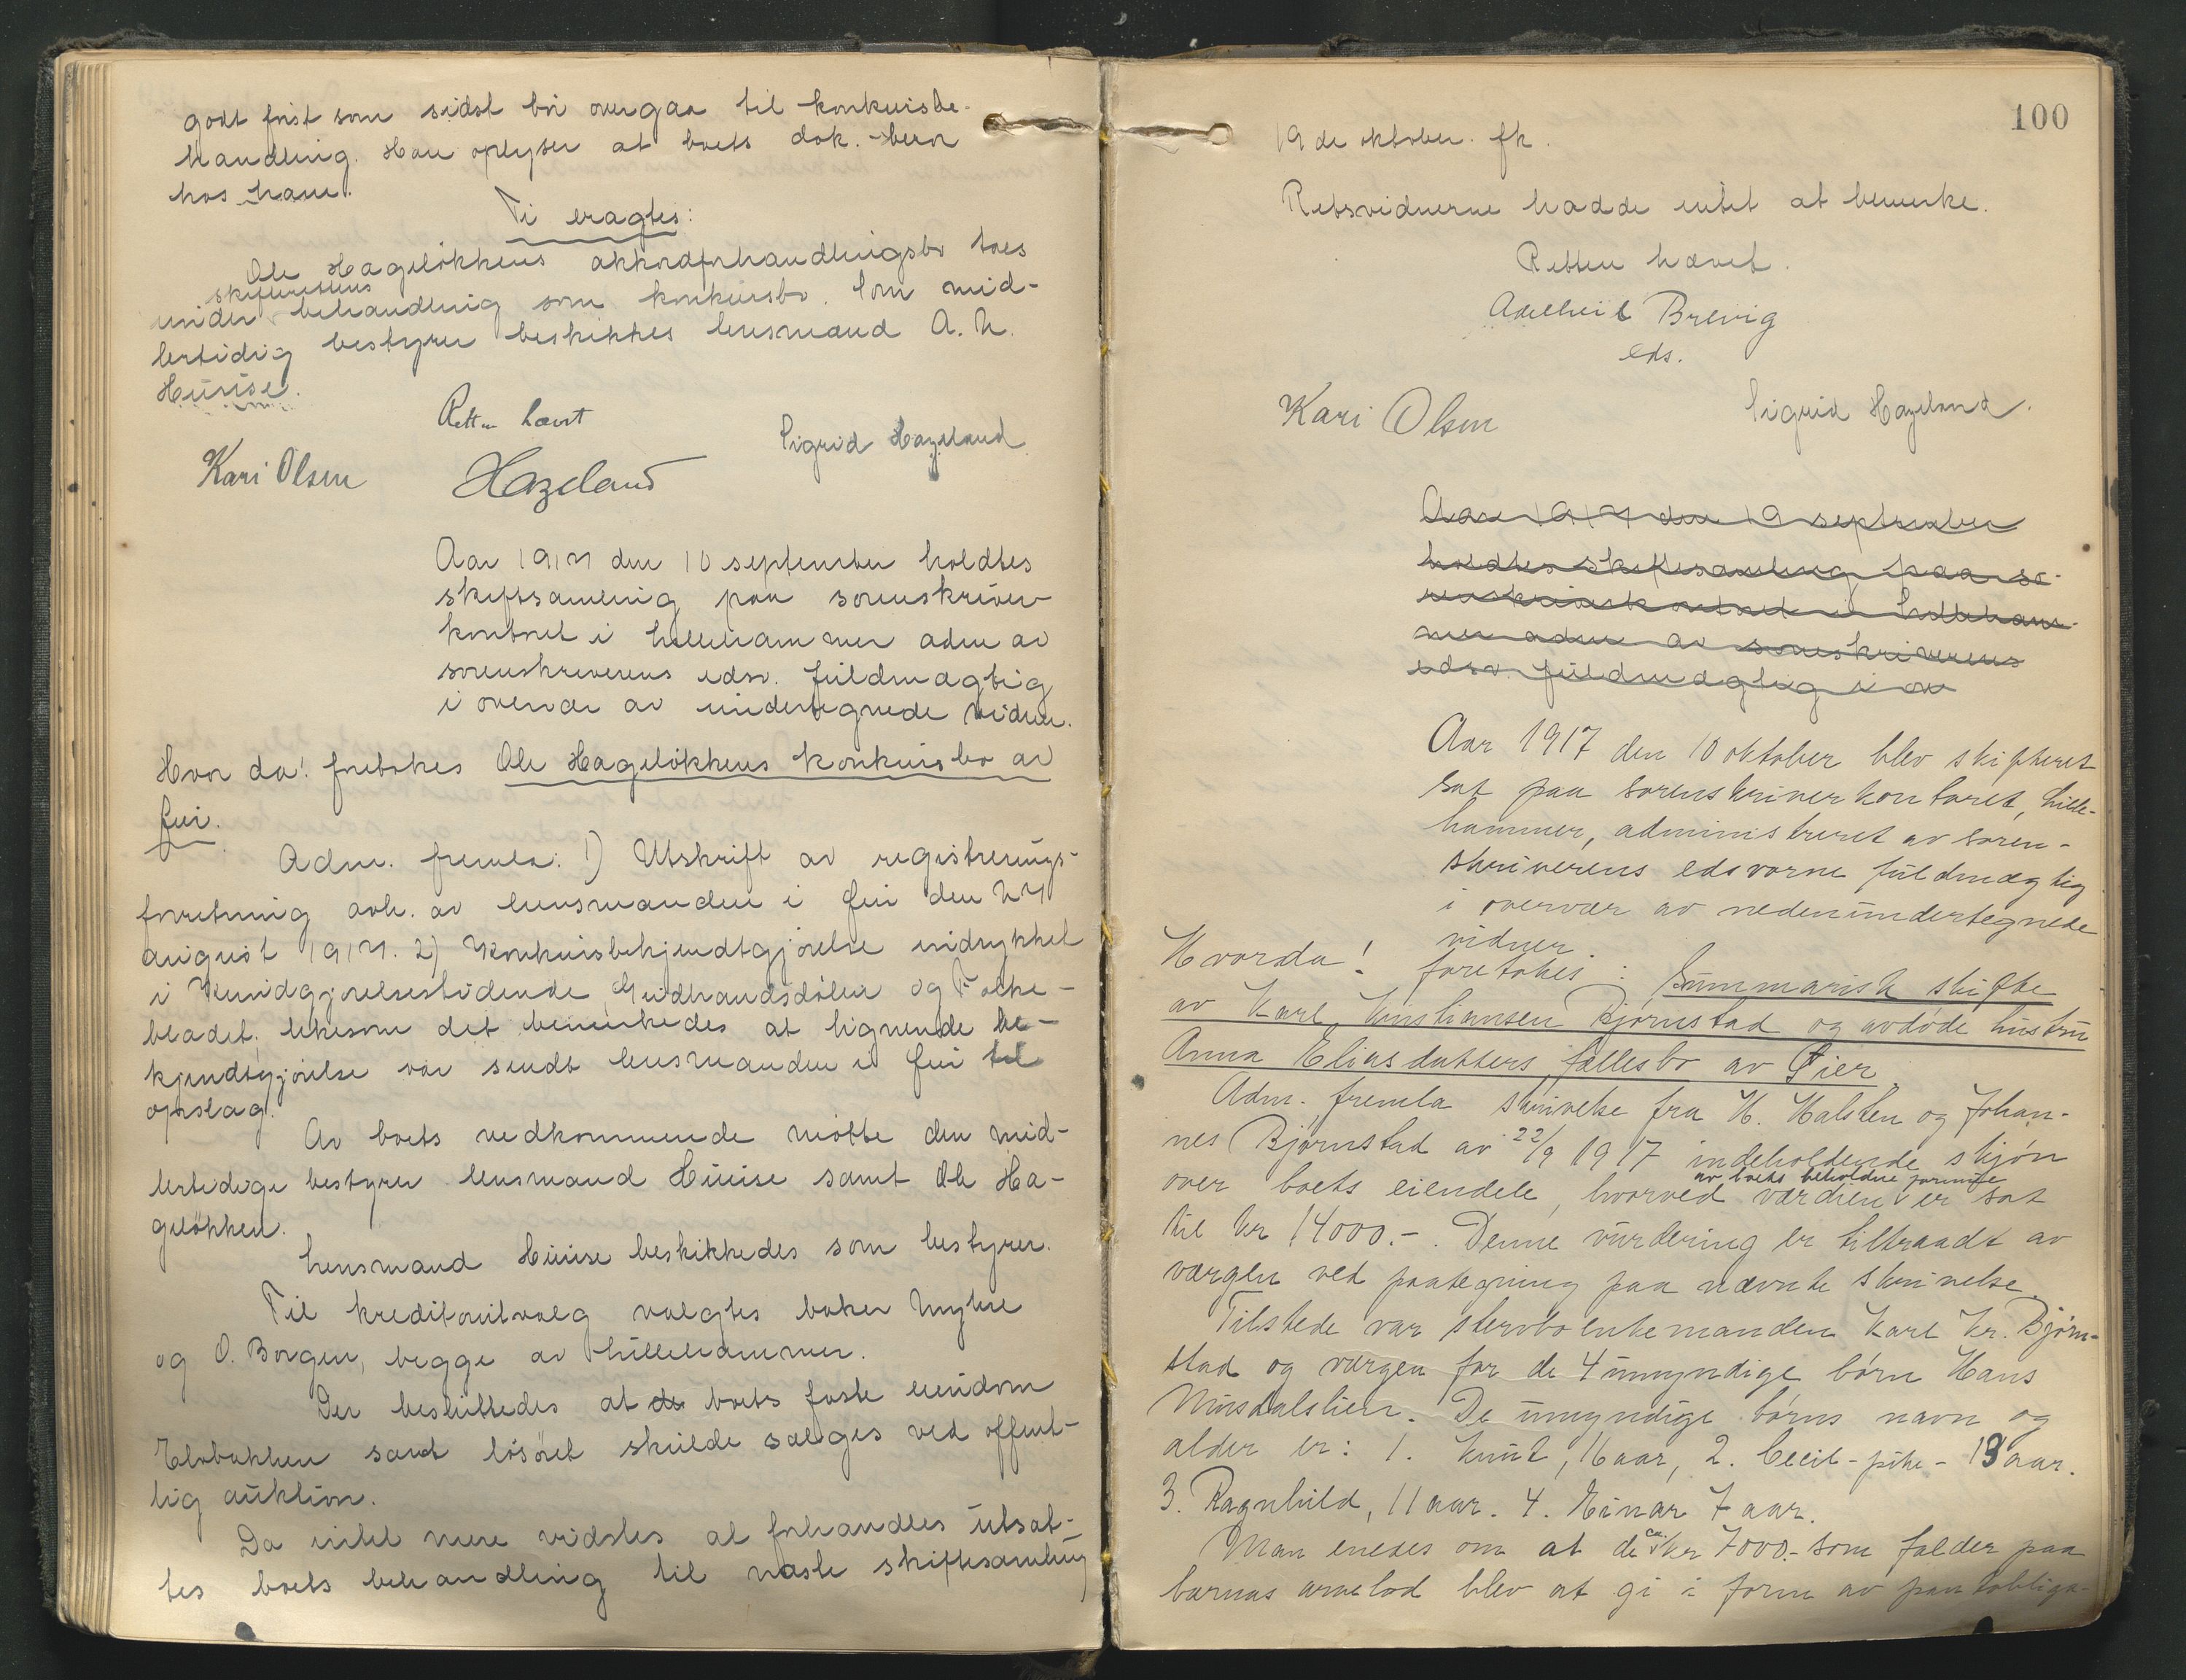 godt først som sidst bør overgaa til konkursbe-
handling. Han oplyser at boets dok. bero
hos ham.
Ti eragtes:
Ole Hageløkkens akkordforhandlingsbo toes
skifterettens
under behandling som konkursbo. Som mid-
lertidig bestyrer beskikkes lensmand A. N.
Huuse.
Retten hævet
Kari Olsen Hazeland Sigrid Hazeland
Aar 1917 den 10 september holdtes
skiftesamling paa sorenskriver-
kontoret i Lillehammer adm av
sorenskriverens edsv. fuldmægtig
i overvær av undertegnede vidner.
Hvor da! foretokes Ole Hageløkkens konkursbo av
Øier.
Adm. fremla: 1) Utskrift av registrerings-
forretning avh. av lensmanden i Øier den 27
august 1917. 2) Konkursbekjendtgjørelse indrykket
i Kundgjørelsestidende, Gudbrandsdølen og Folke-
bladet, likesom det bemerkedes at lignende be-
kjendtgjørelse var sendt lensmanden i Øier til
opslag.
Av boets vedkommende møtte den mid-
lertidige bestyrer lensmand Huuse samt Ole Ha-
geløkken.
Lensmand Huuse beskikkedes som bestyrer.
Til kreditorutvalg valgtes baker
og O. Borgen, begge av Lillehammer.
Der besluttedes at de boets faste eiendom
samt løsøret skulde sælges ved offent-
lig auktion.
Da intet mere vidstes at forhandles utsat-
tes boets behandling til næste skiftesamling
100
19de oktober. fk.
Retsvidnerne hadde intet at bemerke.
Retten hævet.
Adelheid Brevig
eds.
Kari Olsen Sigrid Hazeland.
Aar 1917 den 19 september
holdtes skiftesamling paa so-
renskriverkontoret i Lilleham-
mer adm av sorenskriverens
edsv. fuldmægtig i ov
Aar 1917 den 10 oktober blev skifteret
sat paa sorenskriverkontoret, Lille-
hammer, administreret av soren-
skriverens edsvorne fuldmægtig
i overvær av nedenundertegnede
vidner
Hvorda! foretokes: Summarisk skifte
av Karl Kristiansen Bjørnstad og avdøde hustru
Anna Eliasdatters fællesbo av Øier
Adm. fremla skrivelse fra H. Halsten og Johan-
nes Bjørnstad av 22/9 1917 indeholdende skjøn
av boets beholdne formue
over boets eiendele, hvorved værdien er sat
til kr 14000.-. Denne vurdering er tiltraadt av
værgen ved paategning paa nævnte skrivelse.
Tilstede var stervboenkemanden Karl Kr. Bjørn-
stad og værgen for de 4 umyndige børn Hans
De umyndige børns navn og
alder er: 1. Knut, 16 aar, 2. Cecil - pike - 13 aar.
3. Ragnhild, 11 aar. 4. Einar 7 aar.
ca.
Man enedes om at de kr 7000.- som falder paa
barnas arvelod blev at gi i form av pantobliga-